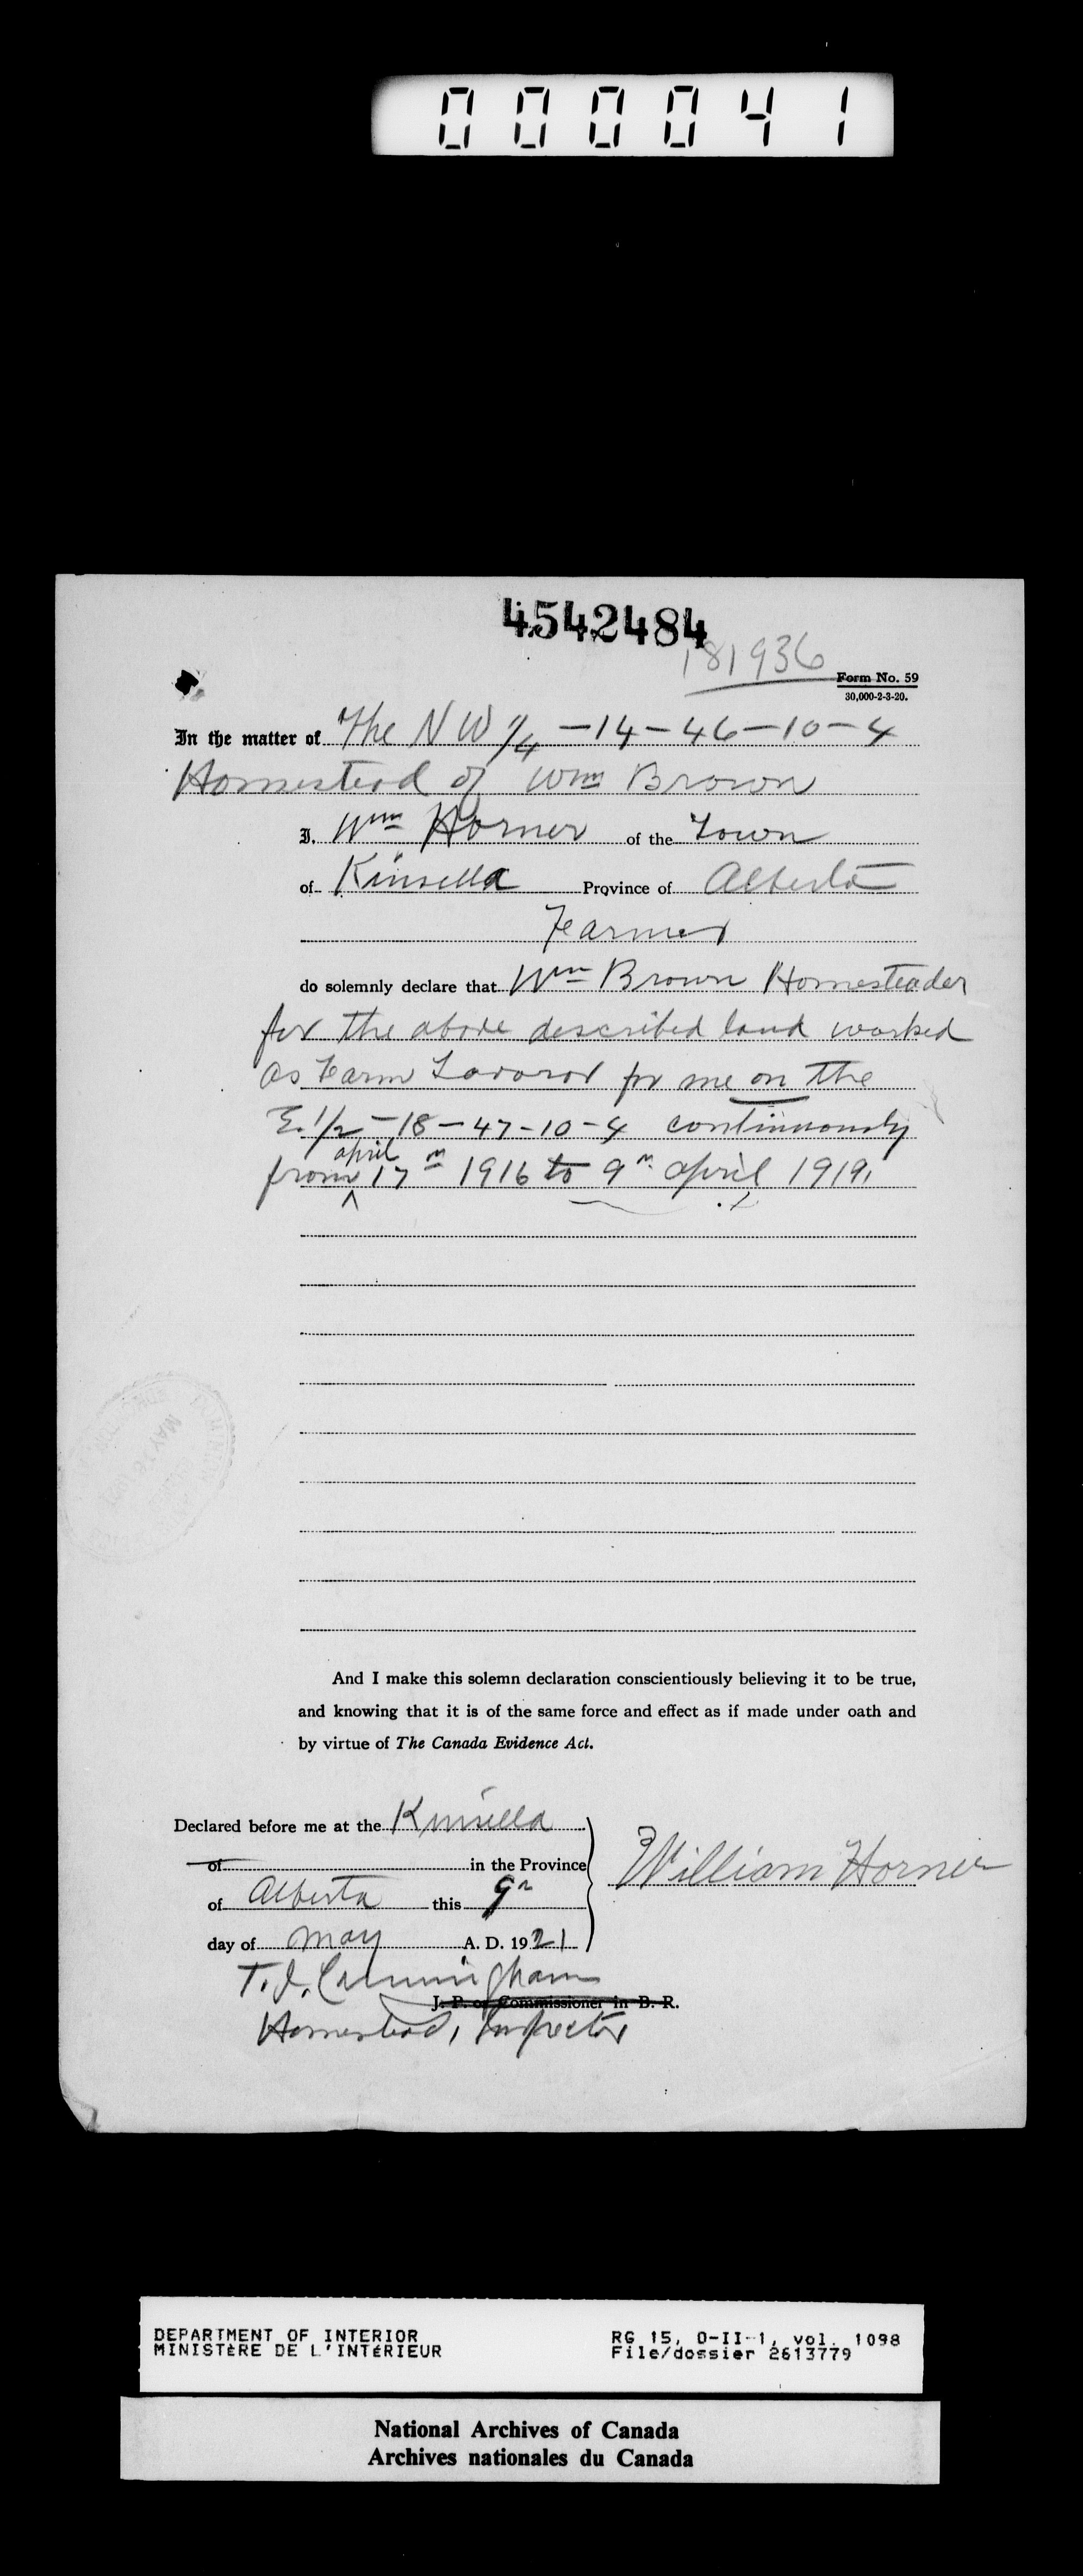 000041
4542484
181936
Form No. 59
30,000-2-3-20.
In the matter of The NW 1/4 - 14 - 46 - 10 - 4
Homestead of Wm Brown
I, Wm Horner of the Town
of Kinsella Province of Alberta
Farmer
do solemnly declare that Wm Brown Homesteader
for the above described land worked
as Farm Laboror for me on the
E. 1/2 - 18 - 47 - 10 - 4 continuously
april
from 17th 1916 to 9th april 1919.
And I make this solemn declaration conscientiously believing it to be true,
and knowing that it is of the same force and effect as if made under oath and
by virtue of The Canada Evidence Act.
Declared before me at the Kinsella
of in the Province
William Horner
of Alberta this 9th
day of May A. D. 1921
T. J. Cunningham
J. P. or Commissioner in B. R.
Homestead, Inspector
DEPARTMENT OF INTERIOR
MINISTÈRE DE L'INTÉRIEUR
RG 15, D-II-1, vol. 1098
File/dossier 2613779
National Archives of Canada
Archives nationales du Canada